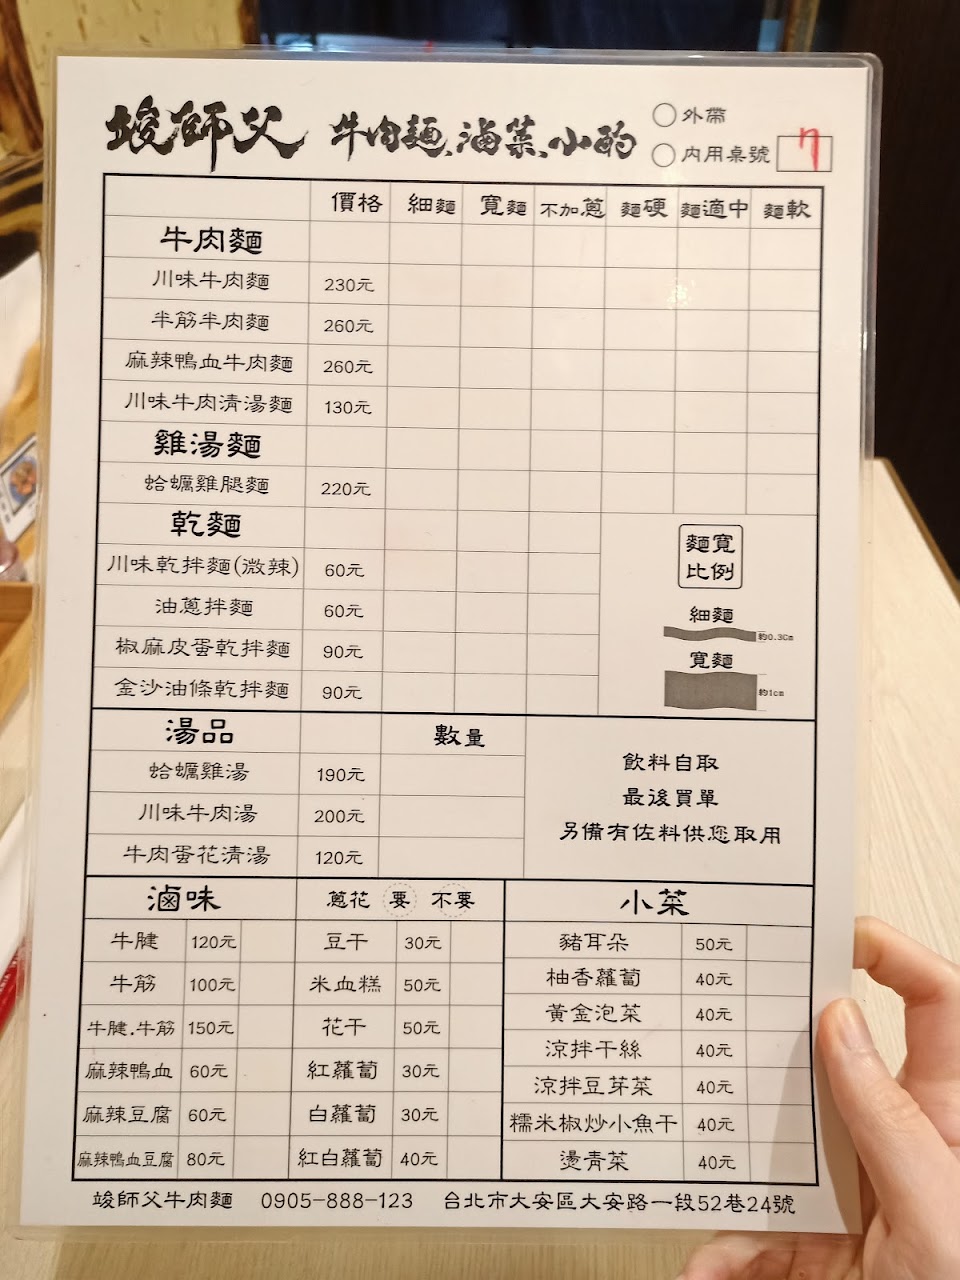 竣師父 牛肉麵、滷菜、小酌
外帶
內用桌號 7
價格 細麵 寬麵 不加蔥 麵硬 麵適中 麵軟
牛肉麵
川味牛肉麵 230元
半筋半肉麵 260元
麻辣鴨血牛肉麵 260元
川味牛肉清湯麵 130元
雞湯麵
蛤蠣雞腿麵 220元
乾麵
川味乾拌麵(微辣) 60元
油蔥拌麵 60元
椒麻皮蛋乾拌麵 90元
金沙油條乾拌麵 90元
麵寬
比例
細麵
約0.3Cm
寬麵
約1cm
湯品 數量
蛤蠣雞湯 190元
川味牛肉湯 200元
牛肉蛋花清湯 120元
飲料自取
最後買單
另備有佐料供您取用
滷味 蔥花 要 不要
牛腱 120元 豆干 30元
牛筋 100元 米血糕 50元
牛腱.牛筋 150元 花干 50元
麻辣鴨血 60元 紅蘿蔔 30元
麻辣豆腐 60元 白蘿蔔 30元
麻辣鴨血豆腐 80元 紅白蘿蔔 40元
小菜
豬耳朵 50元
柚香蘿蔔 40元
黃金泡菜 40元
涼拌干絲 40元
涼拌豆芽菜 40元
糯米椒炒小魚干 40元
燙青菜 40元
竣師父牛肉麵 0905-888-123 台北市大安區大安路一段52巷24號